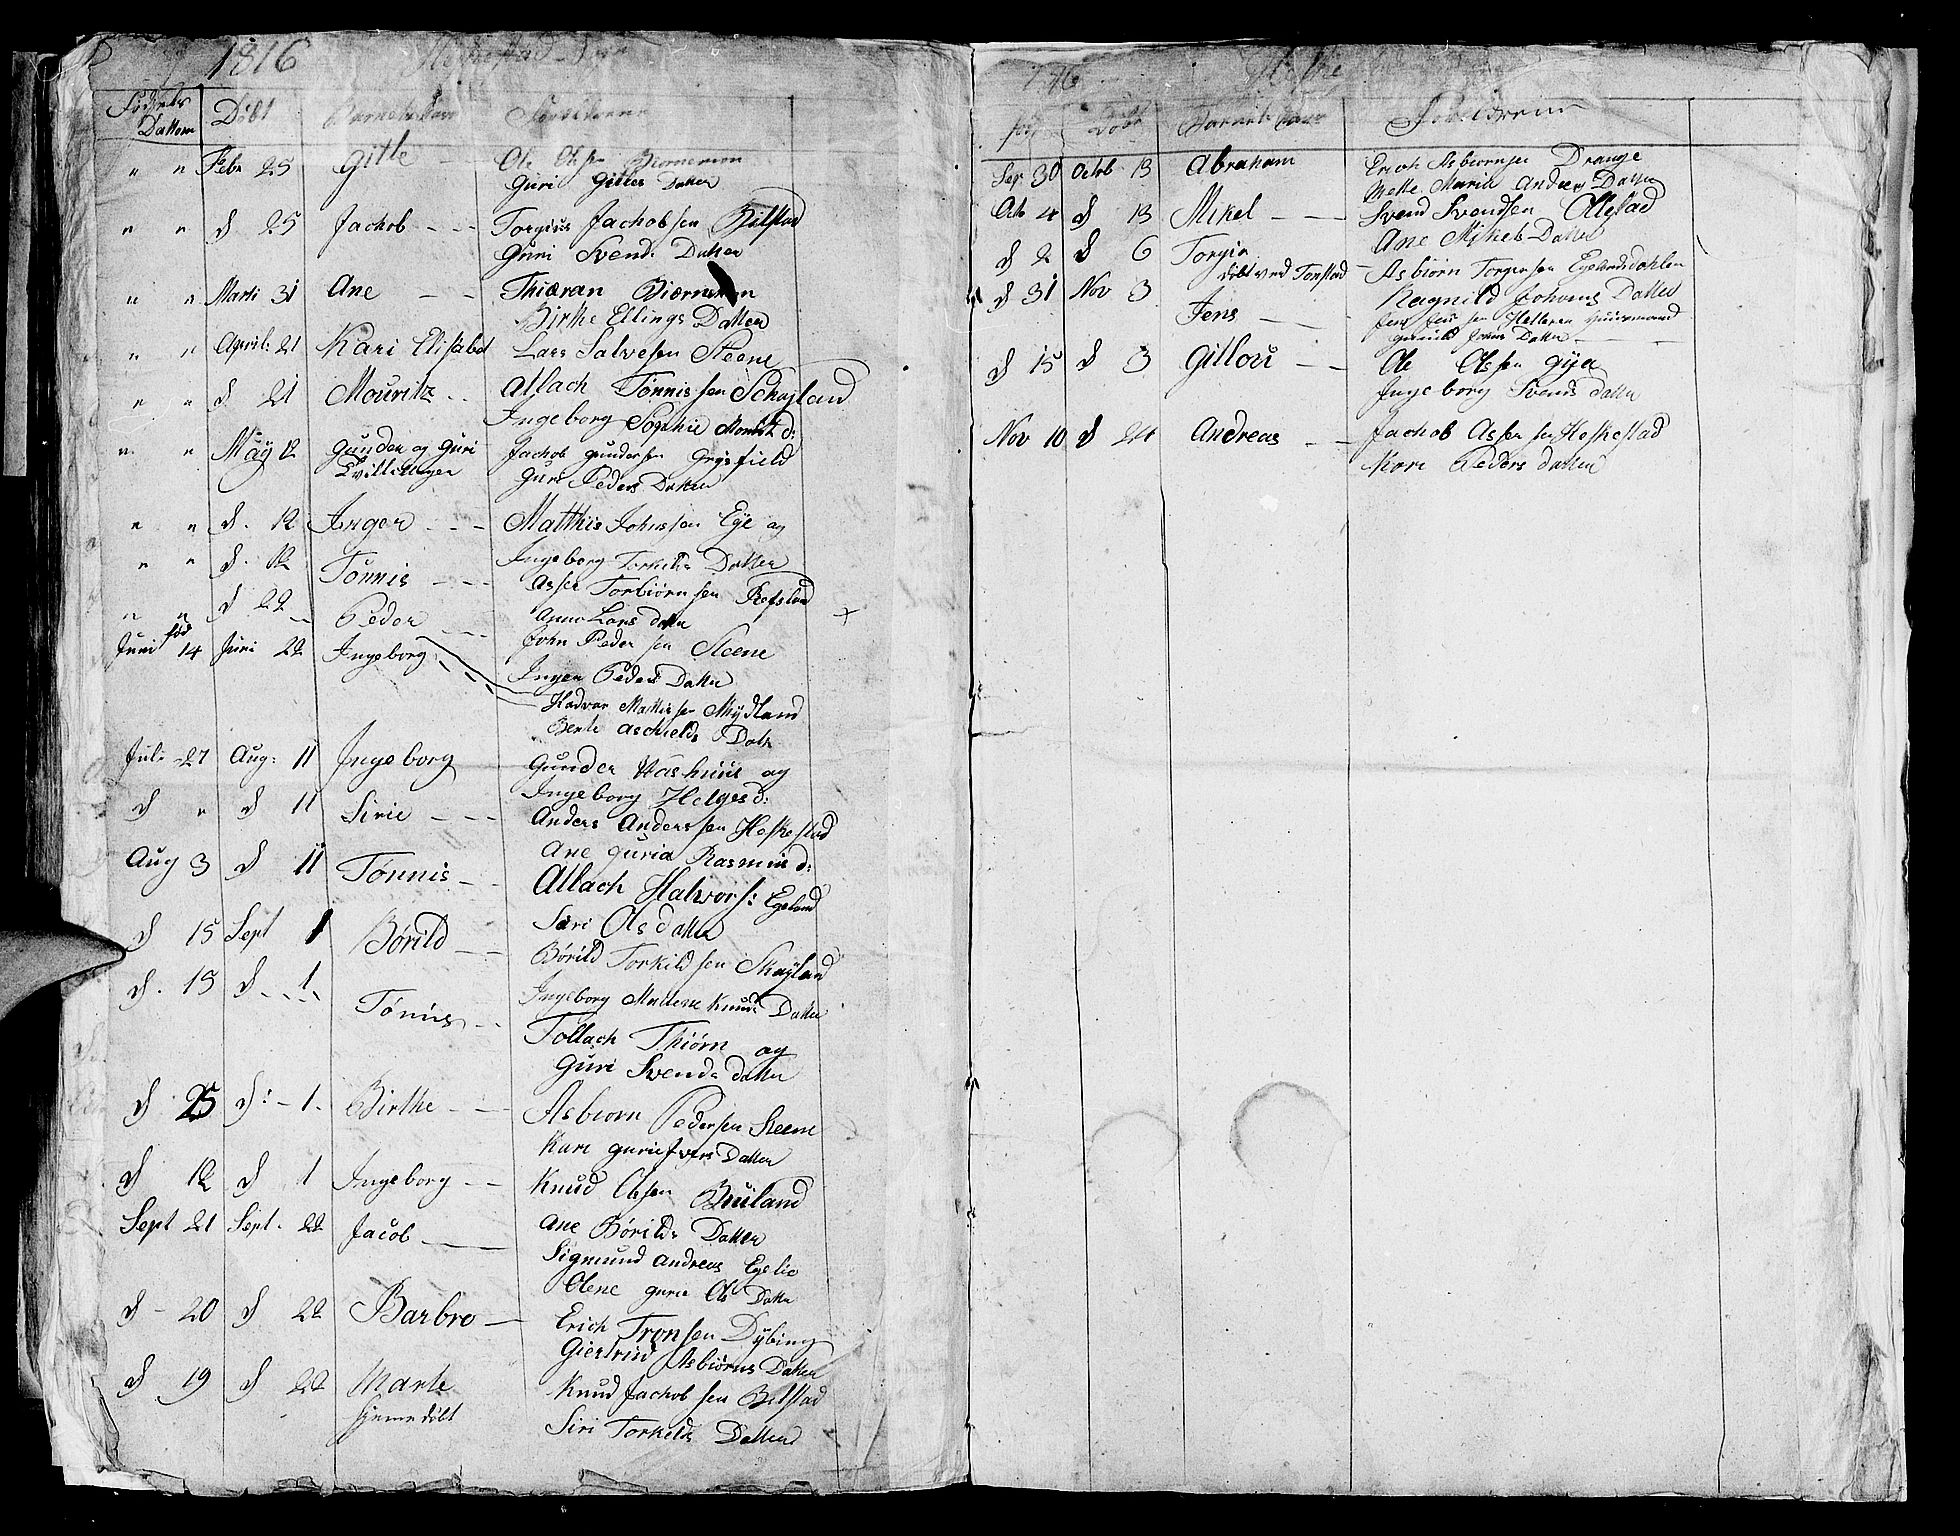 1816
Födsels Dattom | Döbt | Barnets Navn | Forældrene
" " | Febr 25 | Gitle — | Ole Olsen
Guri Gitles Datter
" " | d 25 | Jachob - - - | Torgius Jachobsen Bilstad
Guri Svends Datter
" " | Marti 31 | Ane - - |
Birthe Ellings Datter
" " | April: 21 | Kari Elisabet | Lars Salvesen Steene
" " | d 21 | Mouritz - - | Atlach Tönnissen Schayland
Ingeborg Sophie Mouritz d:
" " | May 12 | Gunder og Guri | Jachob Gundersen Grøsfield
Tvillinger | Guri Peders Datter
" " | d. 12 | Inger - - - | Matthis Johnssen Eye og
Ingeborg Torkilds Datter
" " | d. 12 | Tönnis - - - | Asser Torbiörnsen Refsland
" " | d 22 | Peder - - - | Anna Lars datter +
John Pedersen Steene
föd
Juni 14 | Juni 22 | Ingeborg | Inger Peders Datter
Hadvar Mathissen Mydland
Berte Aschields Datt
Juli 27 | Aug: 11 | Ingeborg | Gunder og
Ingeborg Helges d:
d " | d 11 | Sirie - - - | Anders Anderssen Heskestad
Ane Guria Rasmus d:
Aug 3 | d 11 | Tönnis - - | Atlach Halvors: Egeland
Siri Ols datter
d 15 | Sept 1 | Börild - - | Börild Torkildsen Skayland
Ingeborg Malene Knuds Datter
d. 15 | d - - 1 | Tönnis - - | Tollach Thiörn og
Guri Svends datter
d 25 | d: - 1 - | Birthe - - - | Asbiorn Pedersen Steene
Kari Guri Ivers Datter
d 12 | d 1 | Ingeborg - - | Knud Olssen Bruland
Ane Börilds Datter
Sept 21 | Sept. 22 | Jacob — | Sigmund Andreas Egelie
Olene Gurie Ols Datter
d - 20 | d 22 | Barbro — | Erich Tronsen Dybing
Giertrud Asbiörns Datter
d 19 | d 22 | Marte | Knud Jachobsen Bilstad
hjemedöbt | Siri Torkilds Datter
föd | Döbt | Barnets Navn | Forældrene
Sep 30 | Octob 13 | Abraham | Erich Asbiornsen Drange
Mette Maria Anders Datter
Octo 4 | d 13 | Mikel - - — | Svend Svendsen Ollestad
Ane Mikels Datter
d 2 | d 6 | Torgier | Asbiörn Torgersen Egelandsdahlen
döbt ved Tonstad | Ragnild Johans Datter
d 31 | Nov 3 | Jens — — | Jens Jenssen Helleren
Jons Datter
d 15 | d 3 | Gitlou — — | Ole Olssen Gya
Ingeborg Svends datter
Nov 10 | d 24 | Andreas — — | Jachob Assersen Heskestad
Kari Peders datter